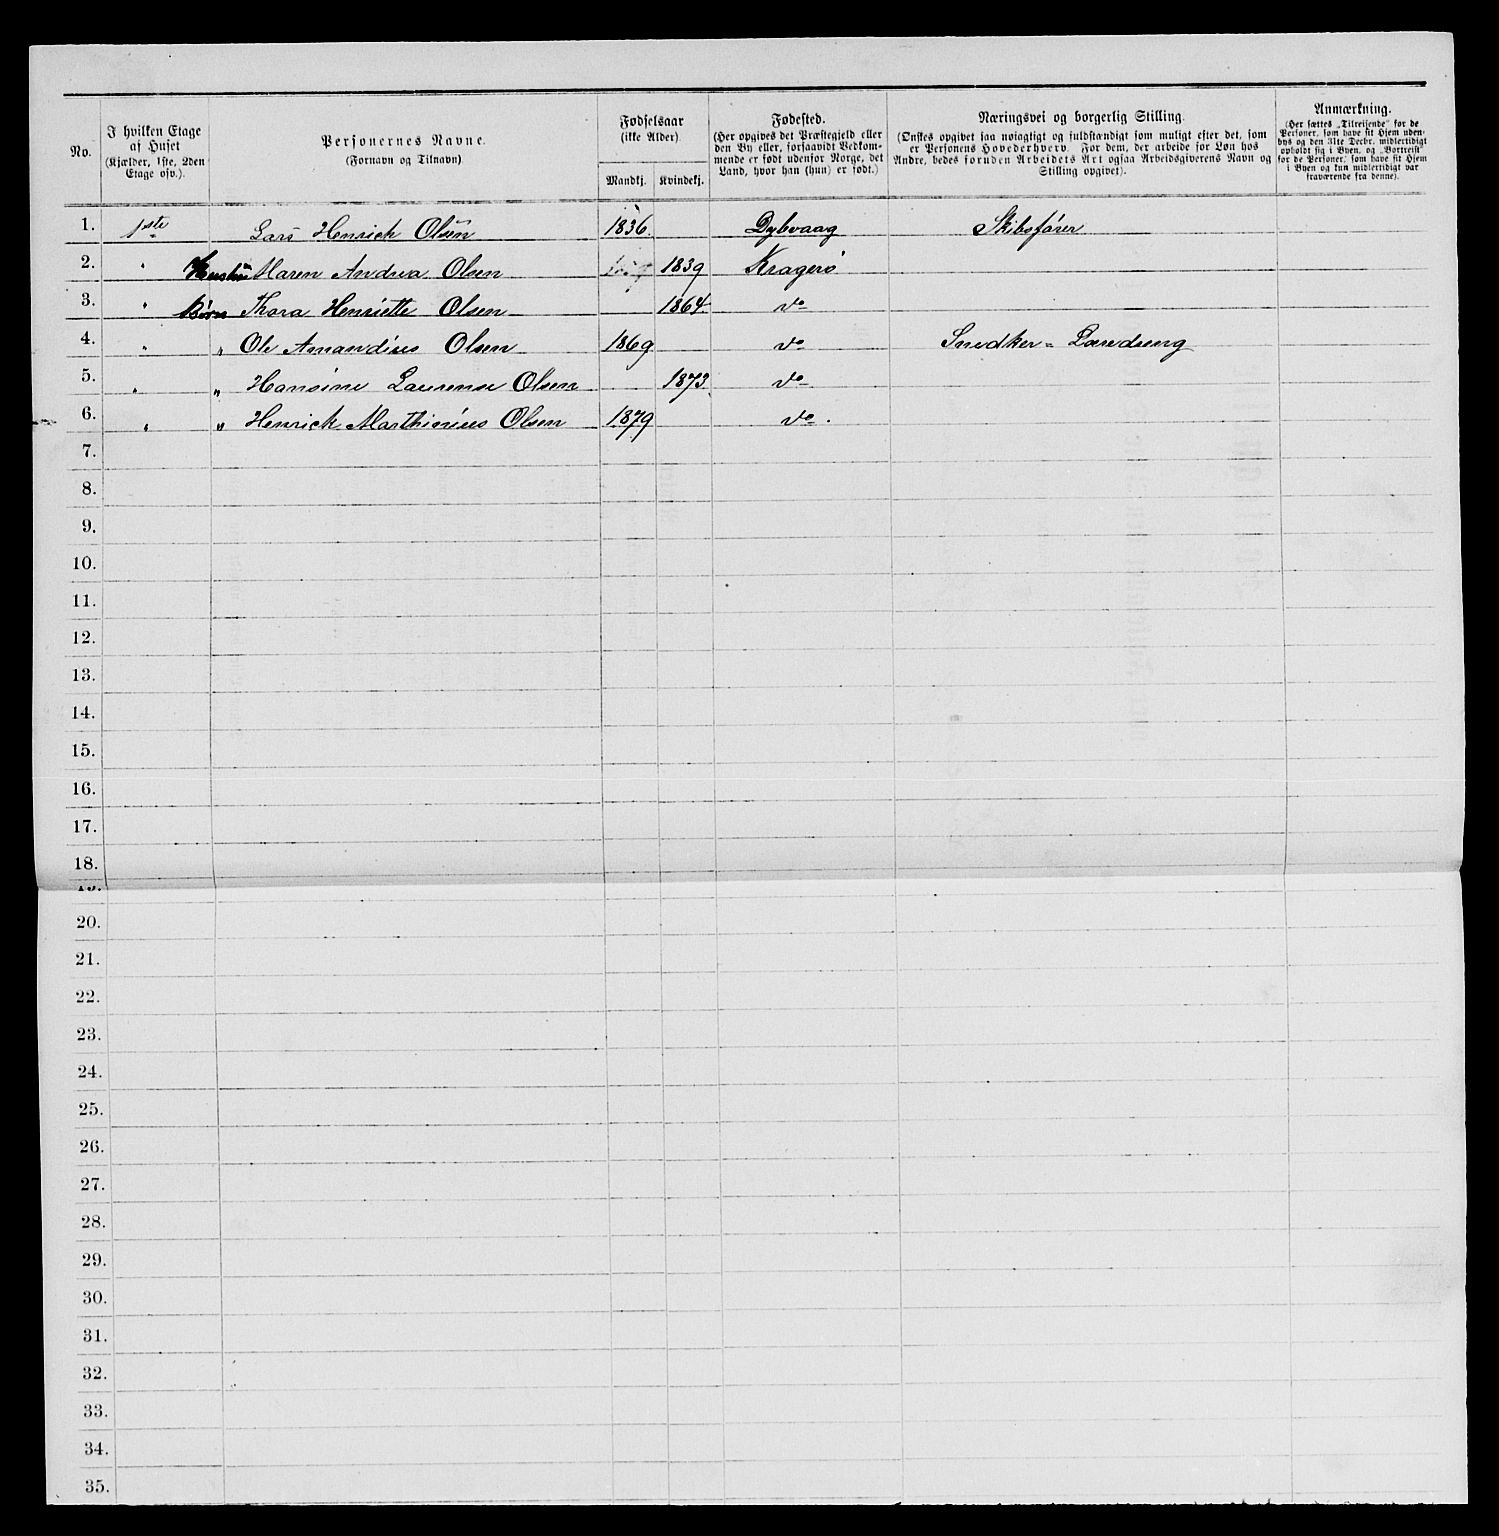 No.
I hvilken Etage
af Huset
(Kjælder, 1ste, 2den
Etage osv.)
Personernes Navne.
(Fornavn og Tilnavn)
Fødselsaar
(ikke Alder)
Mandkj.
Kvindekj.
Fødested.
(Her opgives det Præstegjeld eller
den By eller, forsaavidt Vedkom-
mende er født udenfor Norge, det
Land, hvor han (hun) er født.)
Næringsvei og borgerlig Stilling.
(Ønskes opgivet saa nøiagtigt og fuldstændigt som muligt efter det, som
er Personens Hovederhverv. For dem, der arbeide for Løn hos
Andre, bedes foruden Arbeidets Art ogsaa Arbeidsgiverens Navn og
Stilling opgivet).
Anmærkning.
(Her sættes „Tilreisende“ for de
Personer, som have sit Hjem uden-
bys og den 31te Decbr. midlertidigt
opholdt sig i Byen, og „Bortreist“
for de Personer, som have sit Hjem
i Byen og kun midlertidigt var
fraværende fra denne).
1. 1ste Lars Henrich Olsen 1836 Dybvaag Skibsfører
2. " Hustru Maren Andrea Olsen 1839 Kragerö
3. " Börn Thora Henriette Olsen 1864 do
4. " " Ole Amandius Olsen 1869 do Snedker-Læredreng
5. " " Hansine Laurense Olsen 1873 do
6. " " Henrick Marthinius Olsen 1879 do.
7.
8.
9.
10.
11.
12.
13.
14.
15.
16.
17.
18.
20.
21.
22.
23.
24.
25.
26.
27.
28.
29.
30.
31.
32.
33.
34.
35.